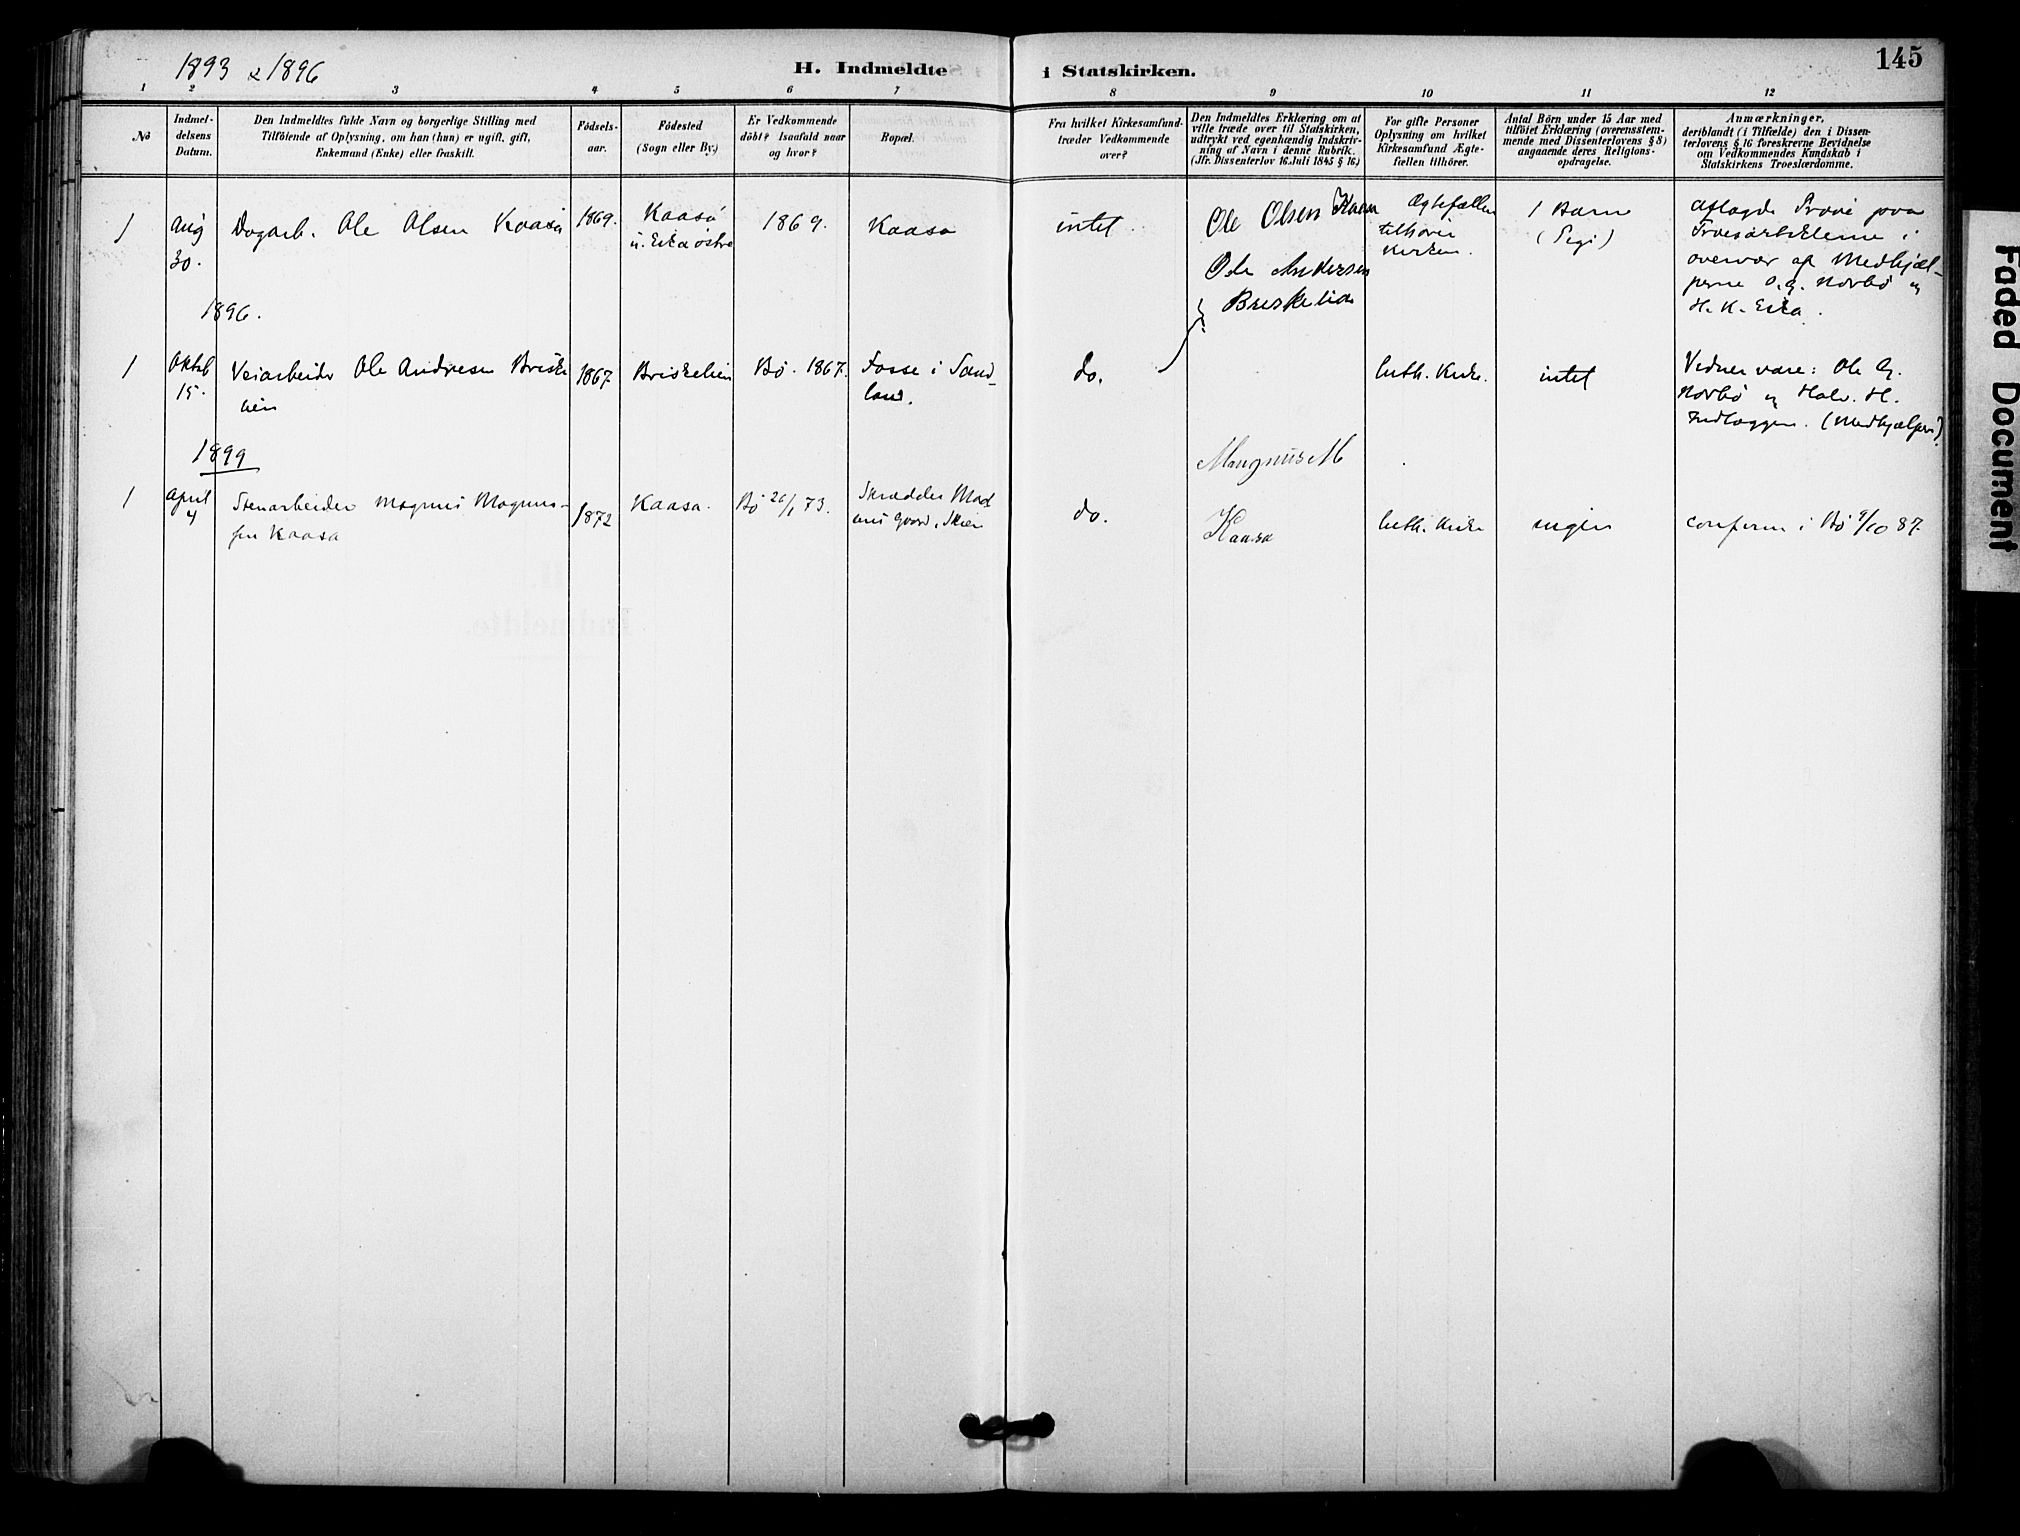 1893 & 1896
H. Indmeldte i Statskirken.
145
1 2 3 4 5 6 7 8 9 10 11 12
No
Indmel-
delsens
Datum.
Den Indmeldtes fulde Navn og borgerlige Stilling med
Tilföiende af Oplysning, om han (hun) er ugift, gift,
Enkemand (Enke) eller fraskilt.
Födsels-
aar.
Födested
(Sogn eller By.)
Er Vedkommende
döbt? Isaafald naar
og hvor?
Bopæl.
Fra hvilket Kirkesamfund
træder Vedkommende
over?
Den Indmeldtes Erklæring om at
ville træde over til Statskirken,
udtrykt ved egenhændig Indskriv-
ning af Navn i denne Rubrik.
(Jfr. Dissenterlov 16 Juli 1845 § 16)
For gifte Personer
Oplysning om hvilket
Kirkesamfund Ægte-
fællen tilhörer.
Antal Börn under 15 Aar med
tilföiet Erklæring (overensstem-
mende med Dissenterlovens § 8)
angaaende deres Religions-
opdragelse.
Anmærkninger,
deriblandt (i Tilfælde) den i Dissen-
terlovens § 16 foreskrevne Bevidnelse
om Vedkommendes Kundskab i
Statskirkens Troeslærdomme.
1
Aug
30.
Dagarb. Ole Olsen Kaasa
1869.
Kaasa
u. Eika östre
1869.
Kaasa
intet
Ole Olsen Kaasa
Ægtefællen
tilhörer
Kirken.
1 Barn
(Pige)
Aflagde Pröve paa
Troesartiklerne i
overvær af Medhjæl-
perne O. G. Norbö og
H. K. Eika.
1896.
1
Oktob
15.
Veiarbeider Ole Andresen Briske
lien
1867
Briskelien
Bö. 1867.
Fosse i Sand-
land.
do.
Ole Andersen
Briskelien
luth. Kirke.
intet
Vidner vare: Ole G.
Norbö og Halv. H.
(Medhjælpere)
1899
1
April
4
Stenarbeider Magnus Magnus-
sen Kaasa
1872
Kaasa.
Bö 26/1 73.
Skrædder Mad
Gaard, Skien
do.
Mangnus M
Kaasa
luth. Kirke
ingen
confirm i Bö 9/10 87.
Faded Document